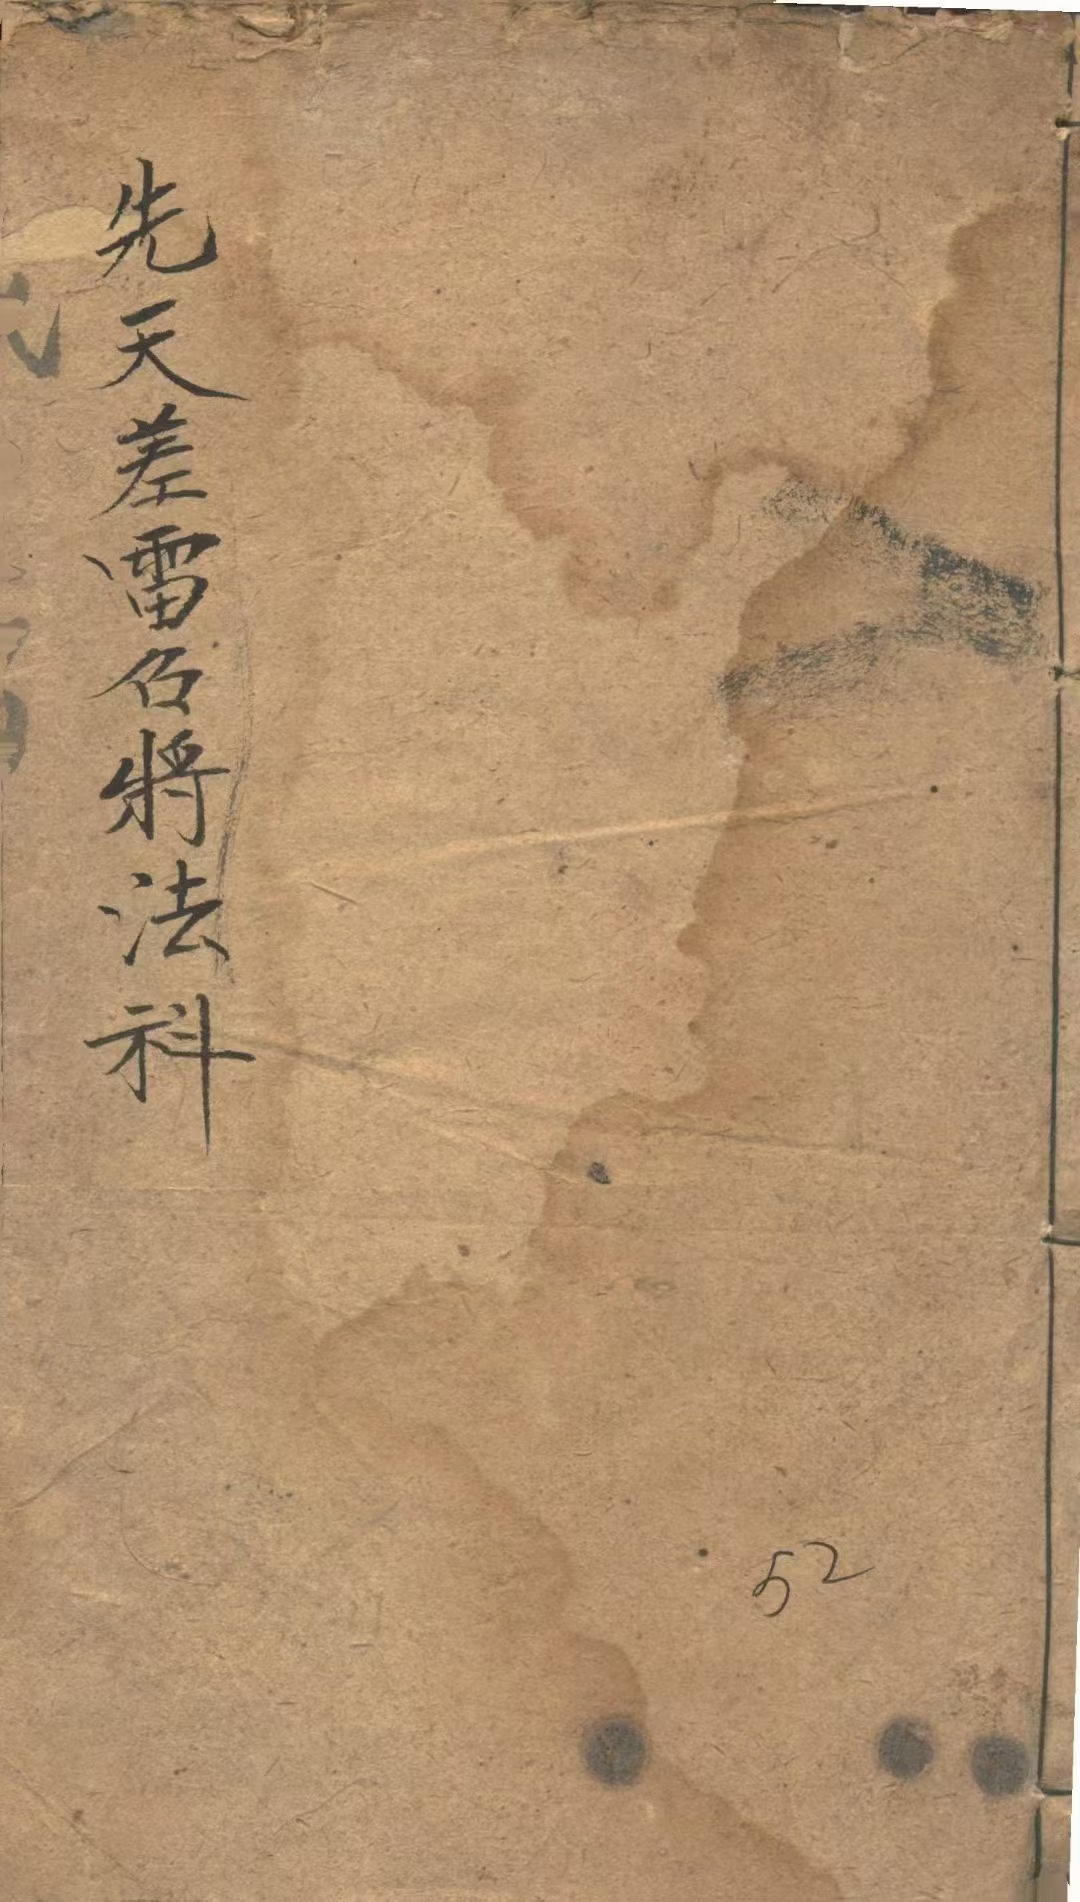 先天差雷召將法科
52